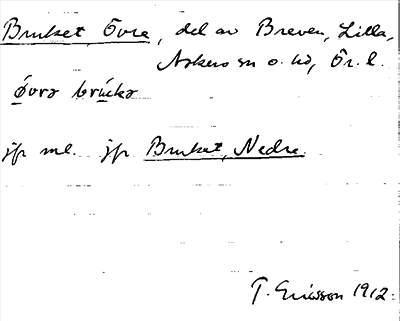 Bruket, Övre, del av Breven, Lilla,
Askers sn o. hd, Ör. l.
övrə brúkə
jfr ml. jfr Bruket, Nedre.
T. Ericsson 1912.